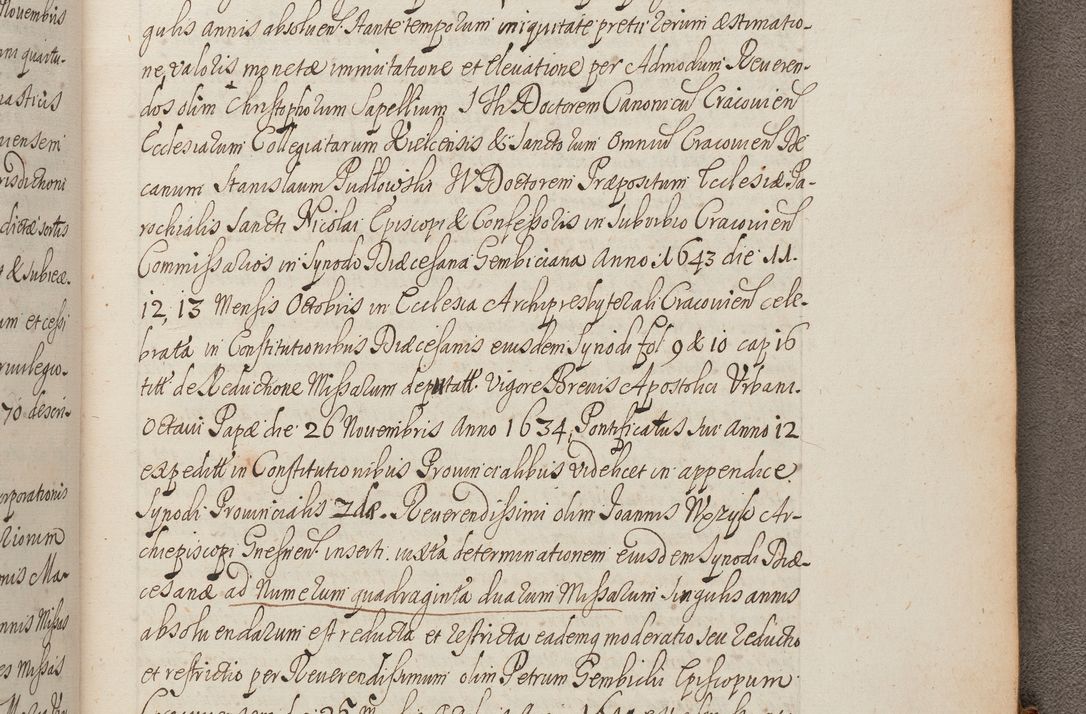 Novembris
gulis annis absoluen. Stante temporum iniquitate pretii rerum æstimatio-
ne, valoris monetæ immutatione et elevatione, per Admodum Reveren-
dos olim Christophorum Sapellium I Th Doctorem Canonicū Cracovien
Ecclesiarum Collegiatarum Kielcensis & Sanctorum Omniū Cracovien De
canum Stanislaum Pudlowski IV Doctorem Præpositum Ecclesiæ Pa-
rochialis Sancti Nicolai Episcopi & Confessoris in Suburbio Cracovien
Commissarios in Synodo Diæcesana Gembiciana Anno 1643 die 11.
12, 13 Mensis Octobris in Ecclesia Archipresbyterali Cracovien cele-
brata in Constitutionibus Diæcesanis eiusdem Synodi fol 9 & 10 cap 16
titt de Reductione Missarum deputatt. Vigore Brevis Apostolici Urbani.
Octavi Papæ die 26 Novembris Anno 1634, Pontificatus sui Anno 12
expeditt in Constitutionibus Provincialibus videlicet in appendice
Synodi Provincialis Reverendissimi olim Ioannis Wężyk Ar-
chiepiscopi Gnesnen. inserti. iuxta determinationem eiusdem Synodi Diæ-
cesanæ ad Numerum quadraginta duarum Missarum singulis annis
absoluendarum est reducta et restricta eademq moderatio seu reductio
et restrictio per Reverendissimum olim Petrum Gembicki Episcopum